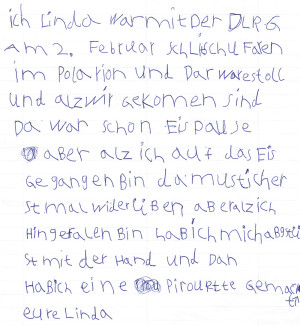 ich Linda war mit Der DLRG
Am 2. Februar schlitschufaren
im Polarion und Dar warestoll
und alzwir gekomen sind
Da war schon Eispause
aber alz ich auf das Eis
gegangen Bin da musticher
stmal widerüben aberalzich
Hingefalen bin habich mich
st mit der Hand und Dan
Habich eine Pirouette gemacht
eure Linda